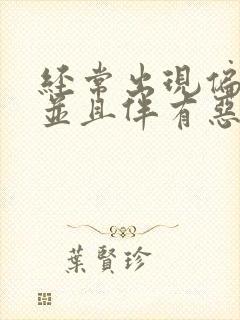 經常出現偏
並且伴有惡
葉賢珍